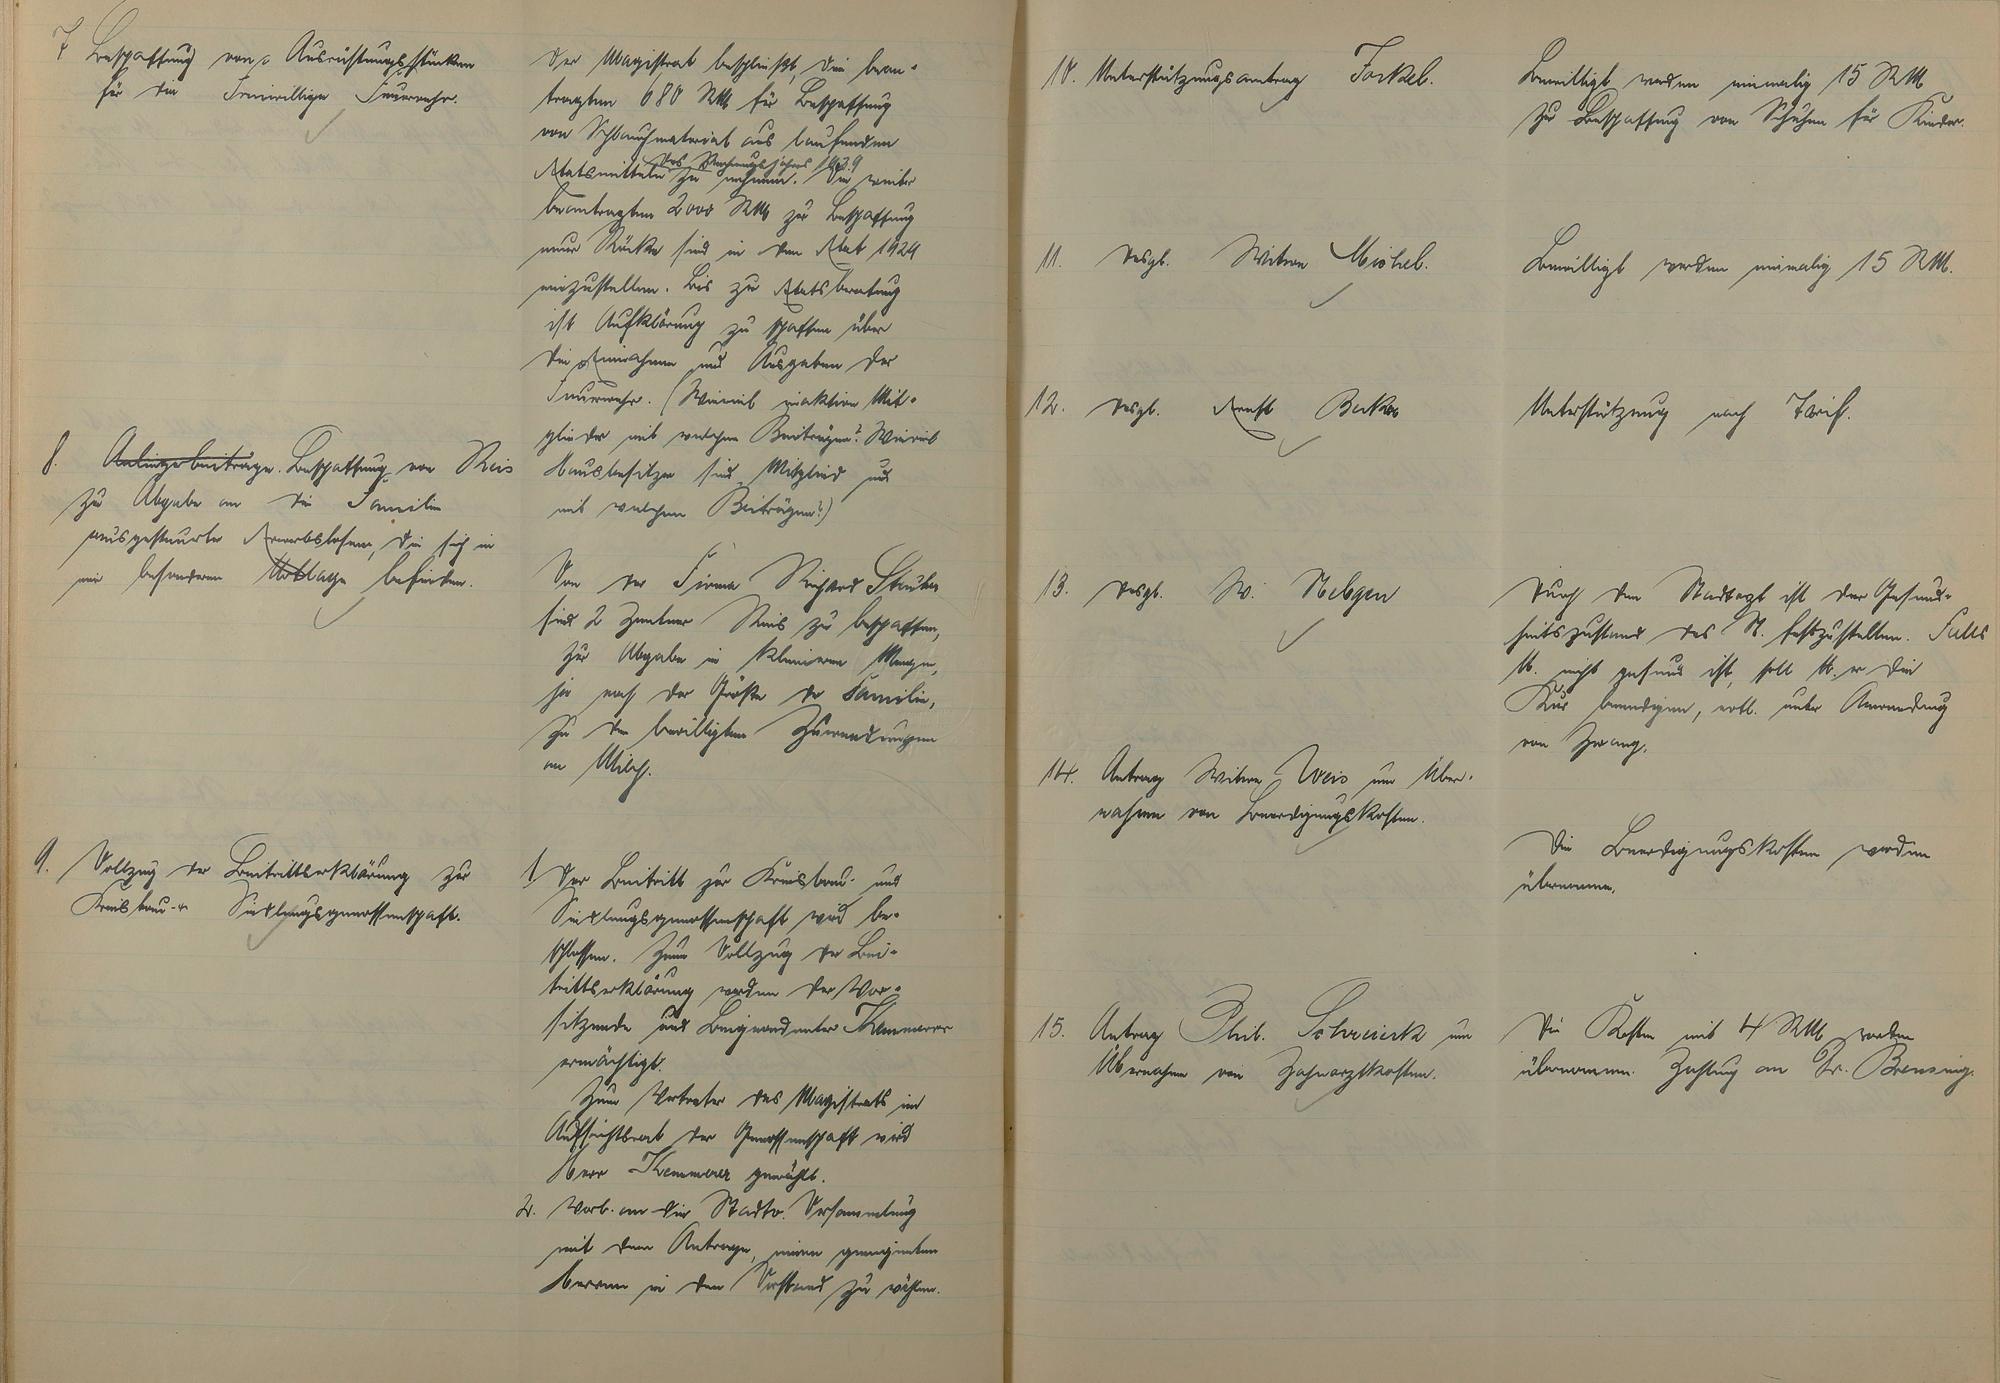 7 Beschaffung von Ausrüstungsstücken
für die Freiwillige Feuerwehr.
Der Magistrat beschließt, die bean-
tragten 680 RM für Beschaffung
von Schlauchmaterial aus laufenden
des Rechnungsjahres 1929
Etatsmitteln zu nehmen. Die weiter
beantragten 2000 RM zur Beschaffung
neuer Röcke sind in den Etat 1929
einzustellen. Bis zur Etatsberatung
ist Aufklärung zu schaffen über
die Einnahmen und Ausgaben der
Feuerwehr. (Wieviel inaktive Mit-
glieder mit welchen Beiträgen? Wieviel
Hausbesitzer sind Mitglied und
mit welchen Beiträgen?)
8. Beschaffung von Reis
zur Abgabe an die Familien
ausgesteuerter Erwerbslosen, die sich in
einer besonderen Notlage befinden.
Von der Firma Richard
sind 2 Zentner Reis zu beschaffen,
zur Abgabe in kleineren Mengen,
je nach der Größe der Familie,
zu den bewilligten Zuwendungen
an Milch.
9. Vollzug der Beitrittserklärung zur
Kreisbau- u. Siedlungsgenossenschaft.
1. Der Beitritt zur Kreisbau- und
Siedlungsgenossenschaft wird be-
schlossen. Zum Vollzug der Bei-
trittserklärung werden der Vor-
sitzende und Beigeordneter Kemmerer
ermächtigt.
Zum Vertreter des Magistrats im
Aufsichtsrat der Genossenschaft wird
Herr Kemmerer gewählt.
2. Vorl. an die Stadtv. Versammlung
mit dem Antrage, einen geeigneten
Herren in den Vorstand zu wählen.
10. Unterstützungsantrag Forkel.
Bewilligt werden einmalig 15 RM
zur Beschaffung von Schuhen für Kinder.
11. desgl. Witwe Michel.
Bewilligt werden einmalig 15 RM.
12. desgl. Ernst Becker
Unterstützung nach Tarif.
13. desgl. W. Nebgen
Durch den Stadtarzt ist der Gesund-
heitszustand des N. festzustellen. Falls
N. nicht gesund ist, soll er die
Kur beendigen, evtl. unter Anwendung
von Zwang.
14. Antrag Witwe Weis um Über-
nahme von Beerdigungskosten.
Die Beerdigungskosten werden
übernommen.
15. Antrag Phil. um
Übernahme von Zahnarztkosten.
Die Kosten mit 4 RM werden
übernommen. Zahlung an Dr. Brensing.